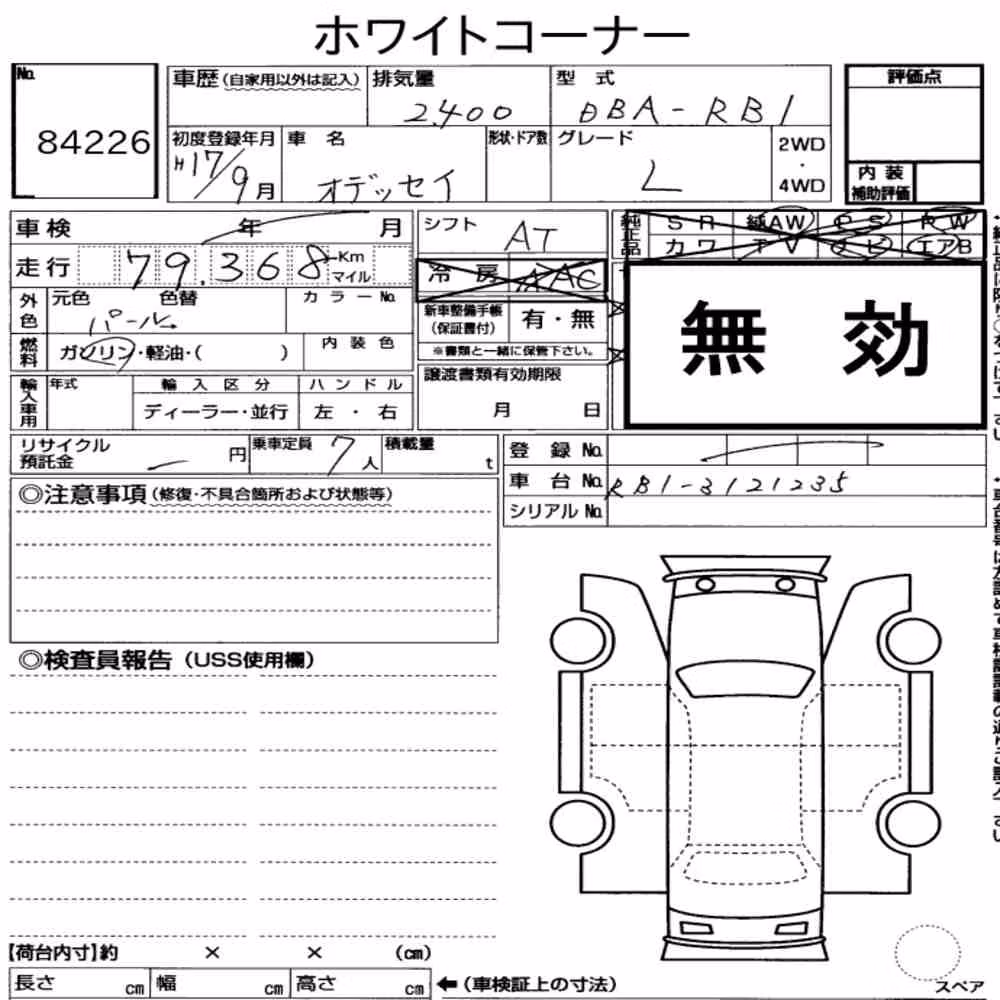 ホワイトコーナー
No.
84226
車歴 (自家用以外は記入)
排気量
2,400
型 式
DBA-RB1
評価点
初度登録年月
H17/9月
車 名
オデッセイ
形状・ドア数
グレード
L
2WD
・
4WD
内 装
補助評価
車検 年 月
走行 79,368 Km
マイル
シフト
AT
純正品
S R 純AW P S P W
カワ T V ナビ エアB
外色
元色 色替
パール
カラーNo.
冷 房 AAC
新車整備手帳
(保証書付)
有・無
※書類と一緒に保管下さい。
無 効
燃料
ガソリン・軽油・( )
内 装 色
輸入車用
年式
輸 入 区 分
ディーラー・並行
ハ ン ド ル
左 ・ 右
譲渡書類有効期限
月 日
リサイクル
預託金
円
乗車定員
7人
積載量
t
登 録 No.
車 台 No. RB1-3121235
シリアル No.
◎注意事項 (修復・不具合箇所および状態等)
◎検査員報告 (USS使用欄)
【荷台内寸】約 × × (cm)
長さ cm 幅 cm 高さ cm
←(車検証上の寸法)
スペア